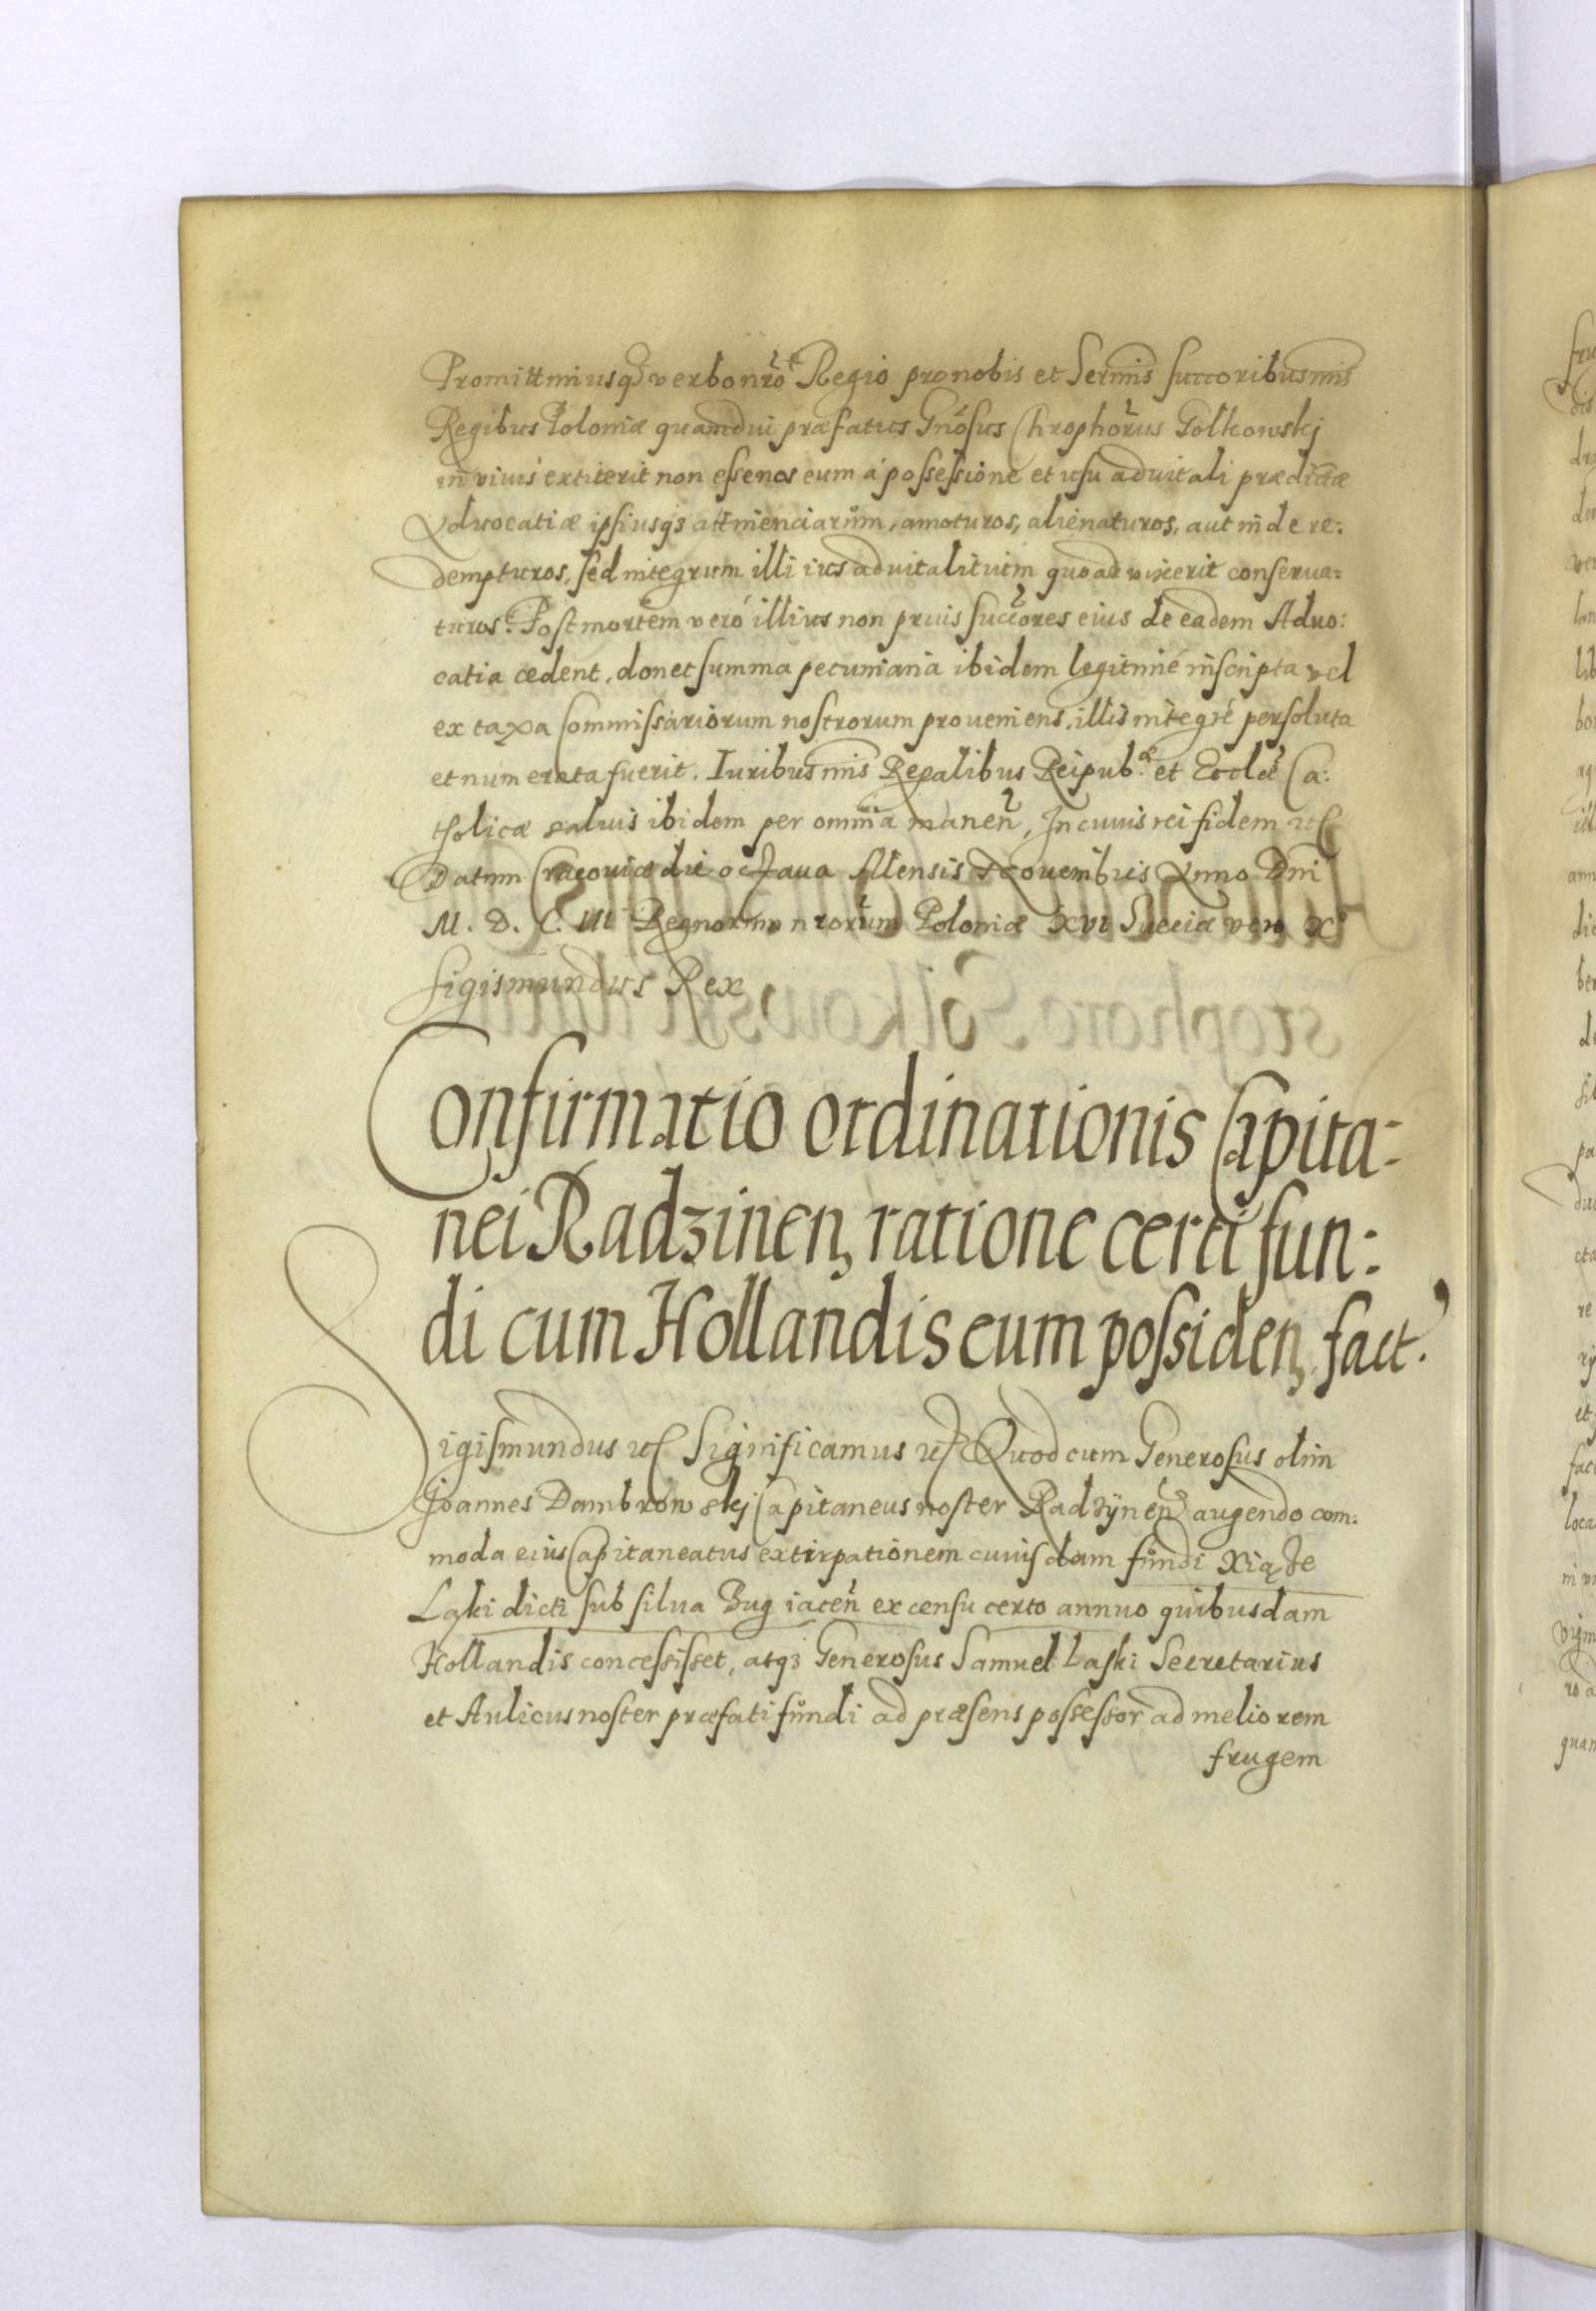 Promittimusq3 verbo nrõ Regio pro nobis et Sermis succoribus nris
Regibus Poloniæ quamdiu præfatus Gnosus Chrophorus Golkowskj
in viuis extiterit non esse nos eum á possessione et usu aduitali prædictæ
Aduocatiæ ipsiusq3 attinenciarum, amoturos, alienaturos, aut inde re:
dempturos, sed integrum illi ius aduitalitium quoad vixerit conserua:
turos. Post mortem veró illius non prius succores eius de eadem Aduo:
catia cedent, donec summa pecuniaria ibidem legitimé inscripta vel
ex taxa Commissariorum nostrorum proueniens, illis integré persoluta
et numerata fuerit. Iuribus nris Regalibus Reipub.æ et Ecclæ Ca:
tholicæ saluis ibidem per omnia manen, In cuius rei fidem
Datum Cracouiæ die octaua Mensis Nouembris Anno Dni
M. D. C. III Regnorum nrorum Poloniæ XVI Sueciæ vero X°
Sigismundus Rex
Confirmatio ordinationis Capita:
nei Radzinen, ratione certi fun:
di cum Hollandis eum possiden, fact.
Sigismundus Significamus Quod cum Generosus olim
Joannes Dambrowskj Capitaneus noster Radzynen augendo com:
moda eius Capitaneatus extirpationem cuiusdam fundi Xiąże
Ląki dicti sub silua Bug iacen ex censu certo annuo quibusdam
Hollandis concessisset, atq3 Generosus Samuel Laski Secretarius
et Aulicus noster præfati fundi ad præsens possessor ad meliorem
frugem